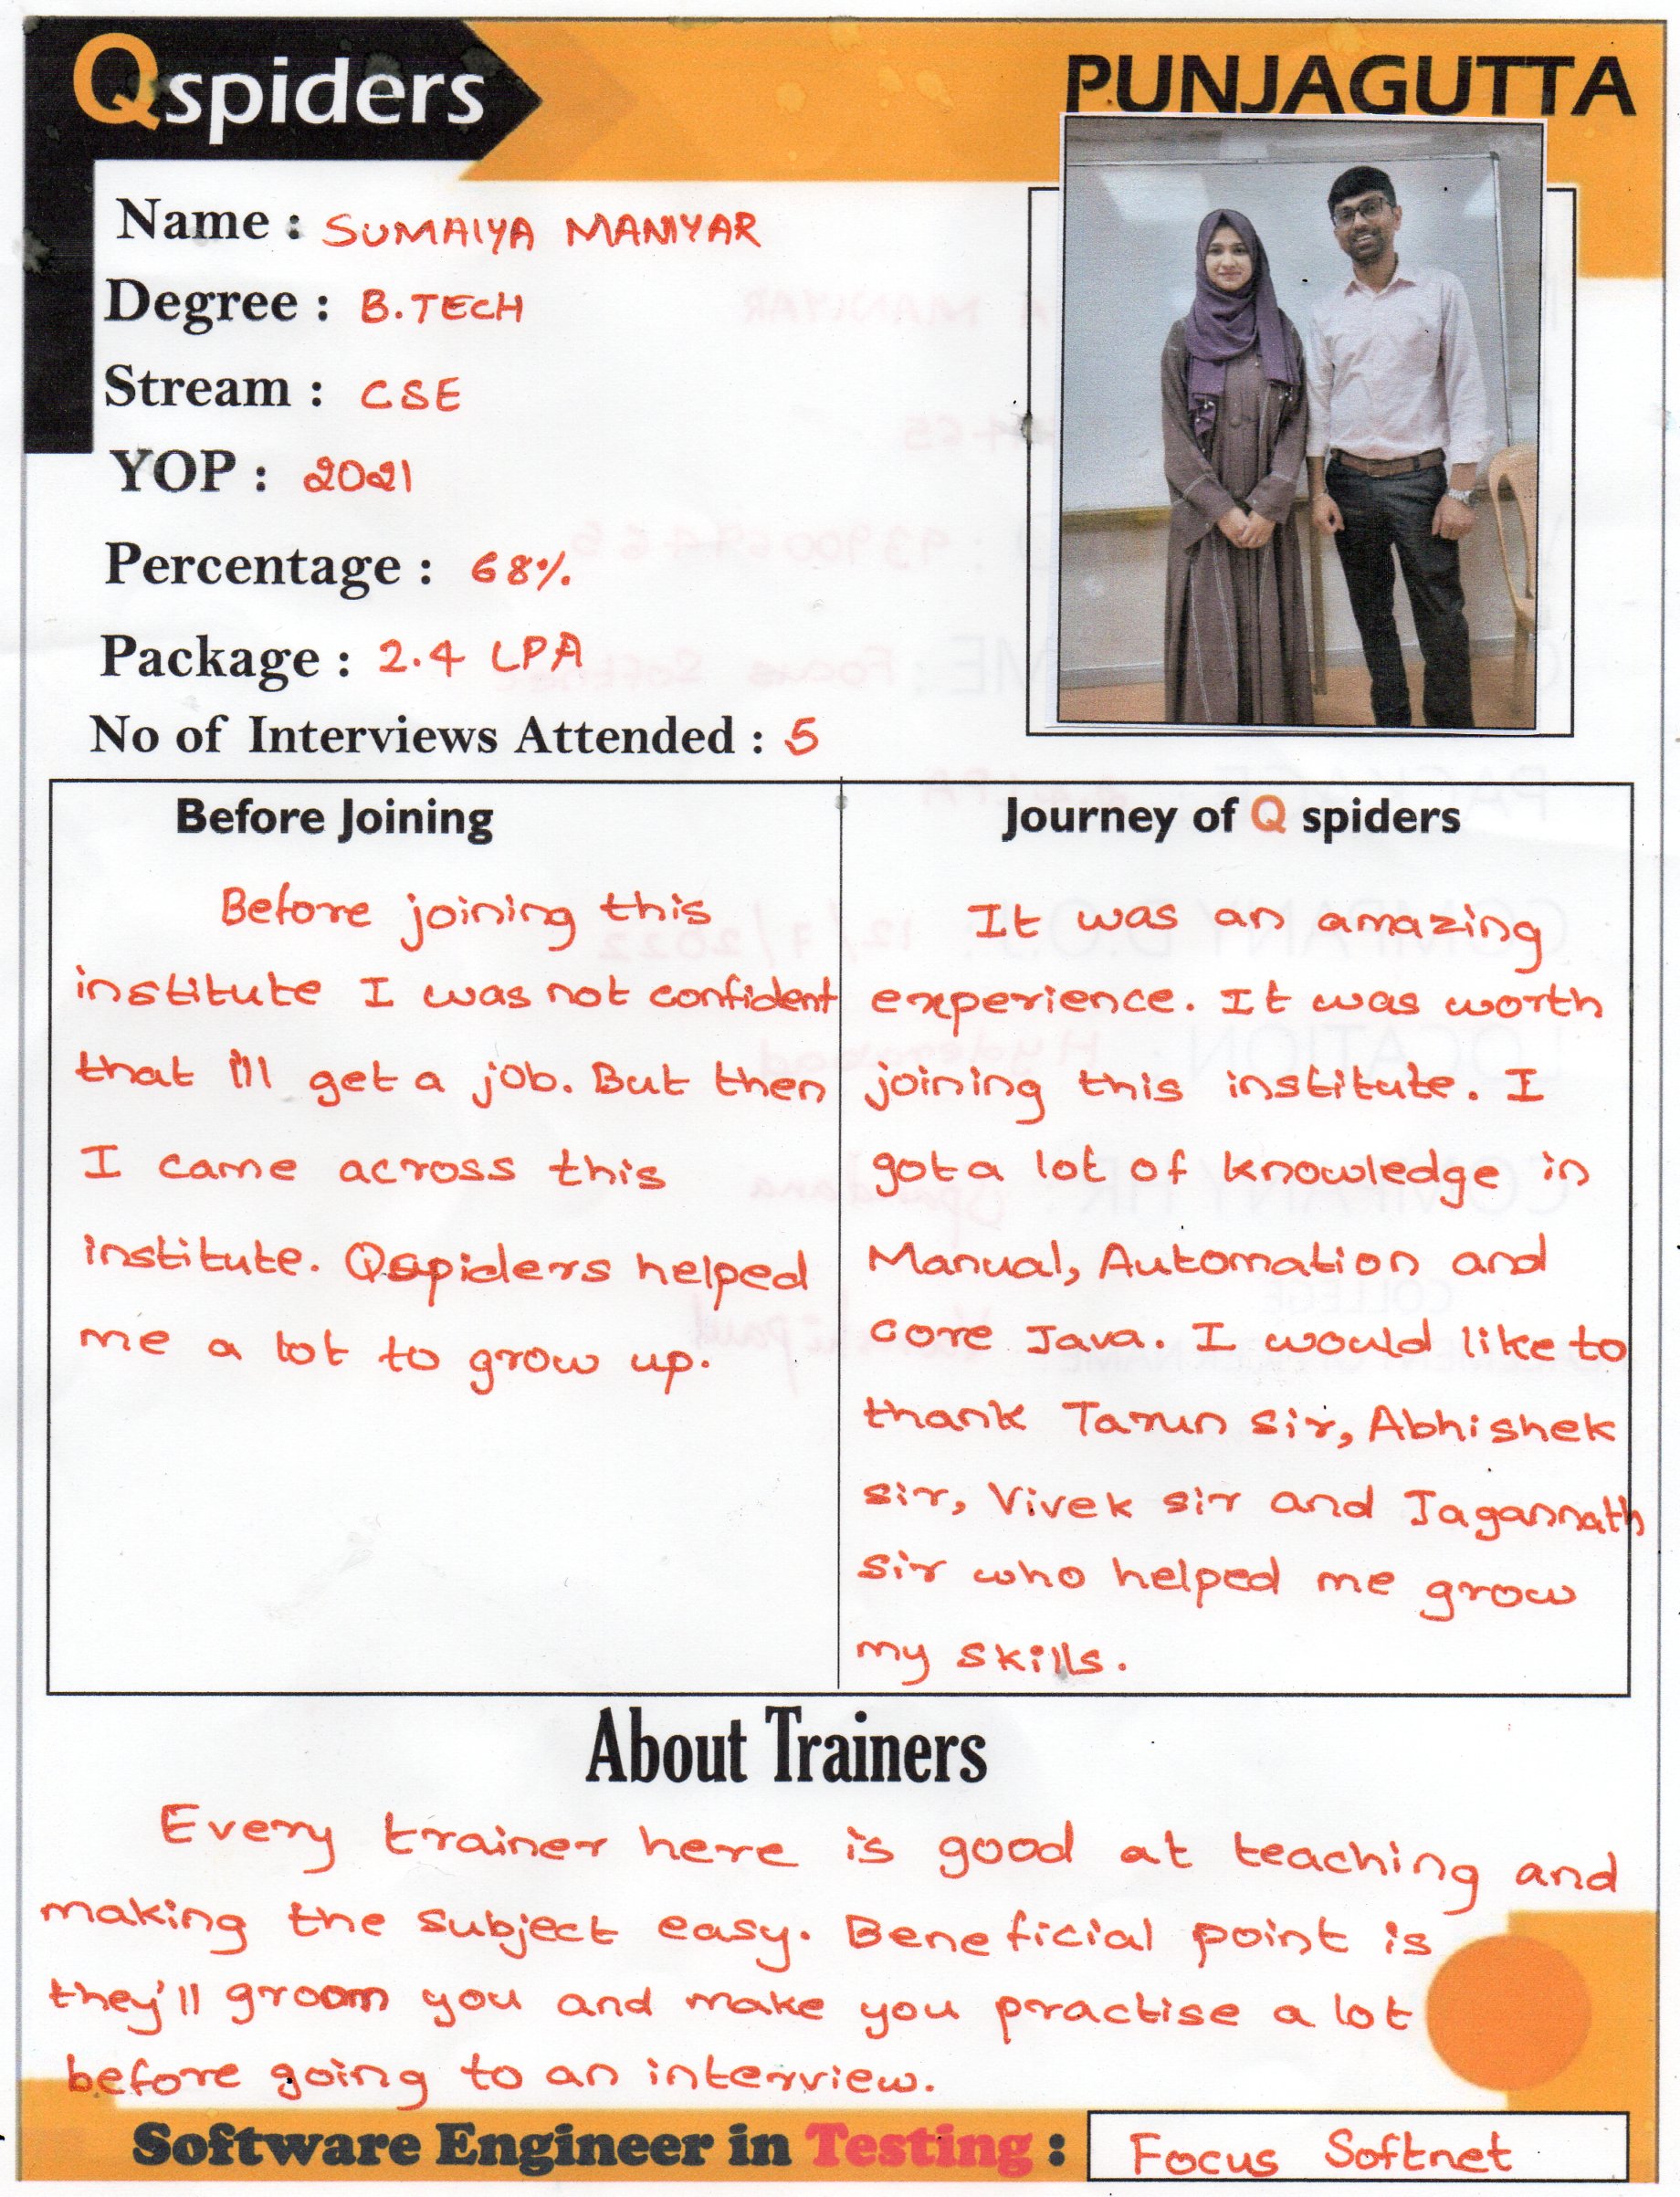 Qspiders
PUNJAGUTTA
Name : SUMAIYA MANIYAR
Degree : B.TECH
Stream : CSE
YOP : 2021
Percentage : 68%
Package : 2.4 LPA
No of Interviews Attended : 5
Before Joining
Before joining this
institute I was not confident
that I'll get a job. But then
I came across this
institute. Qspiders helped
me a lot to grow up.
Journey of Q spiders
It was an amazing
experience. It was worth
joining this institute. I
got a lot of knowledge in
Manual, Automation and
core Java. I would like to
thank Tarun sir, Abhishek
sir, Vivek sir and Jagannath
sir who helped me grow
my skills.
About Trainers
Every trainer here is good at teaching and
making the subject easy. Beneficial point is
they'll groom you and make you practise a lot
before going to an interview.
Software Engineer in Testing : Focus Softnet